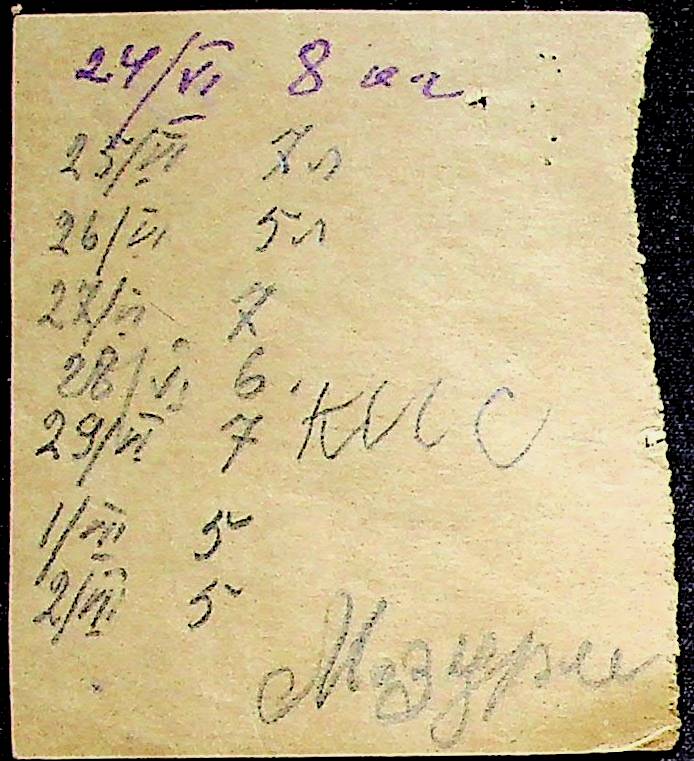 24/VI 8
25/VI 7 л
26/VI 5 л
27/VI 7
28/VI 6.
29/VI 7
1/VII 5
2/VII 5